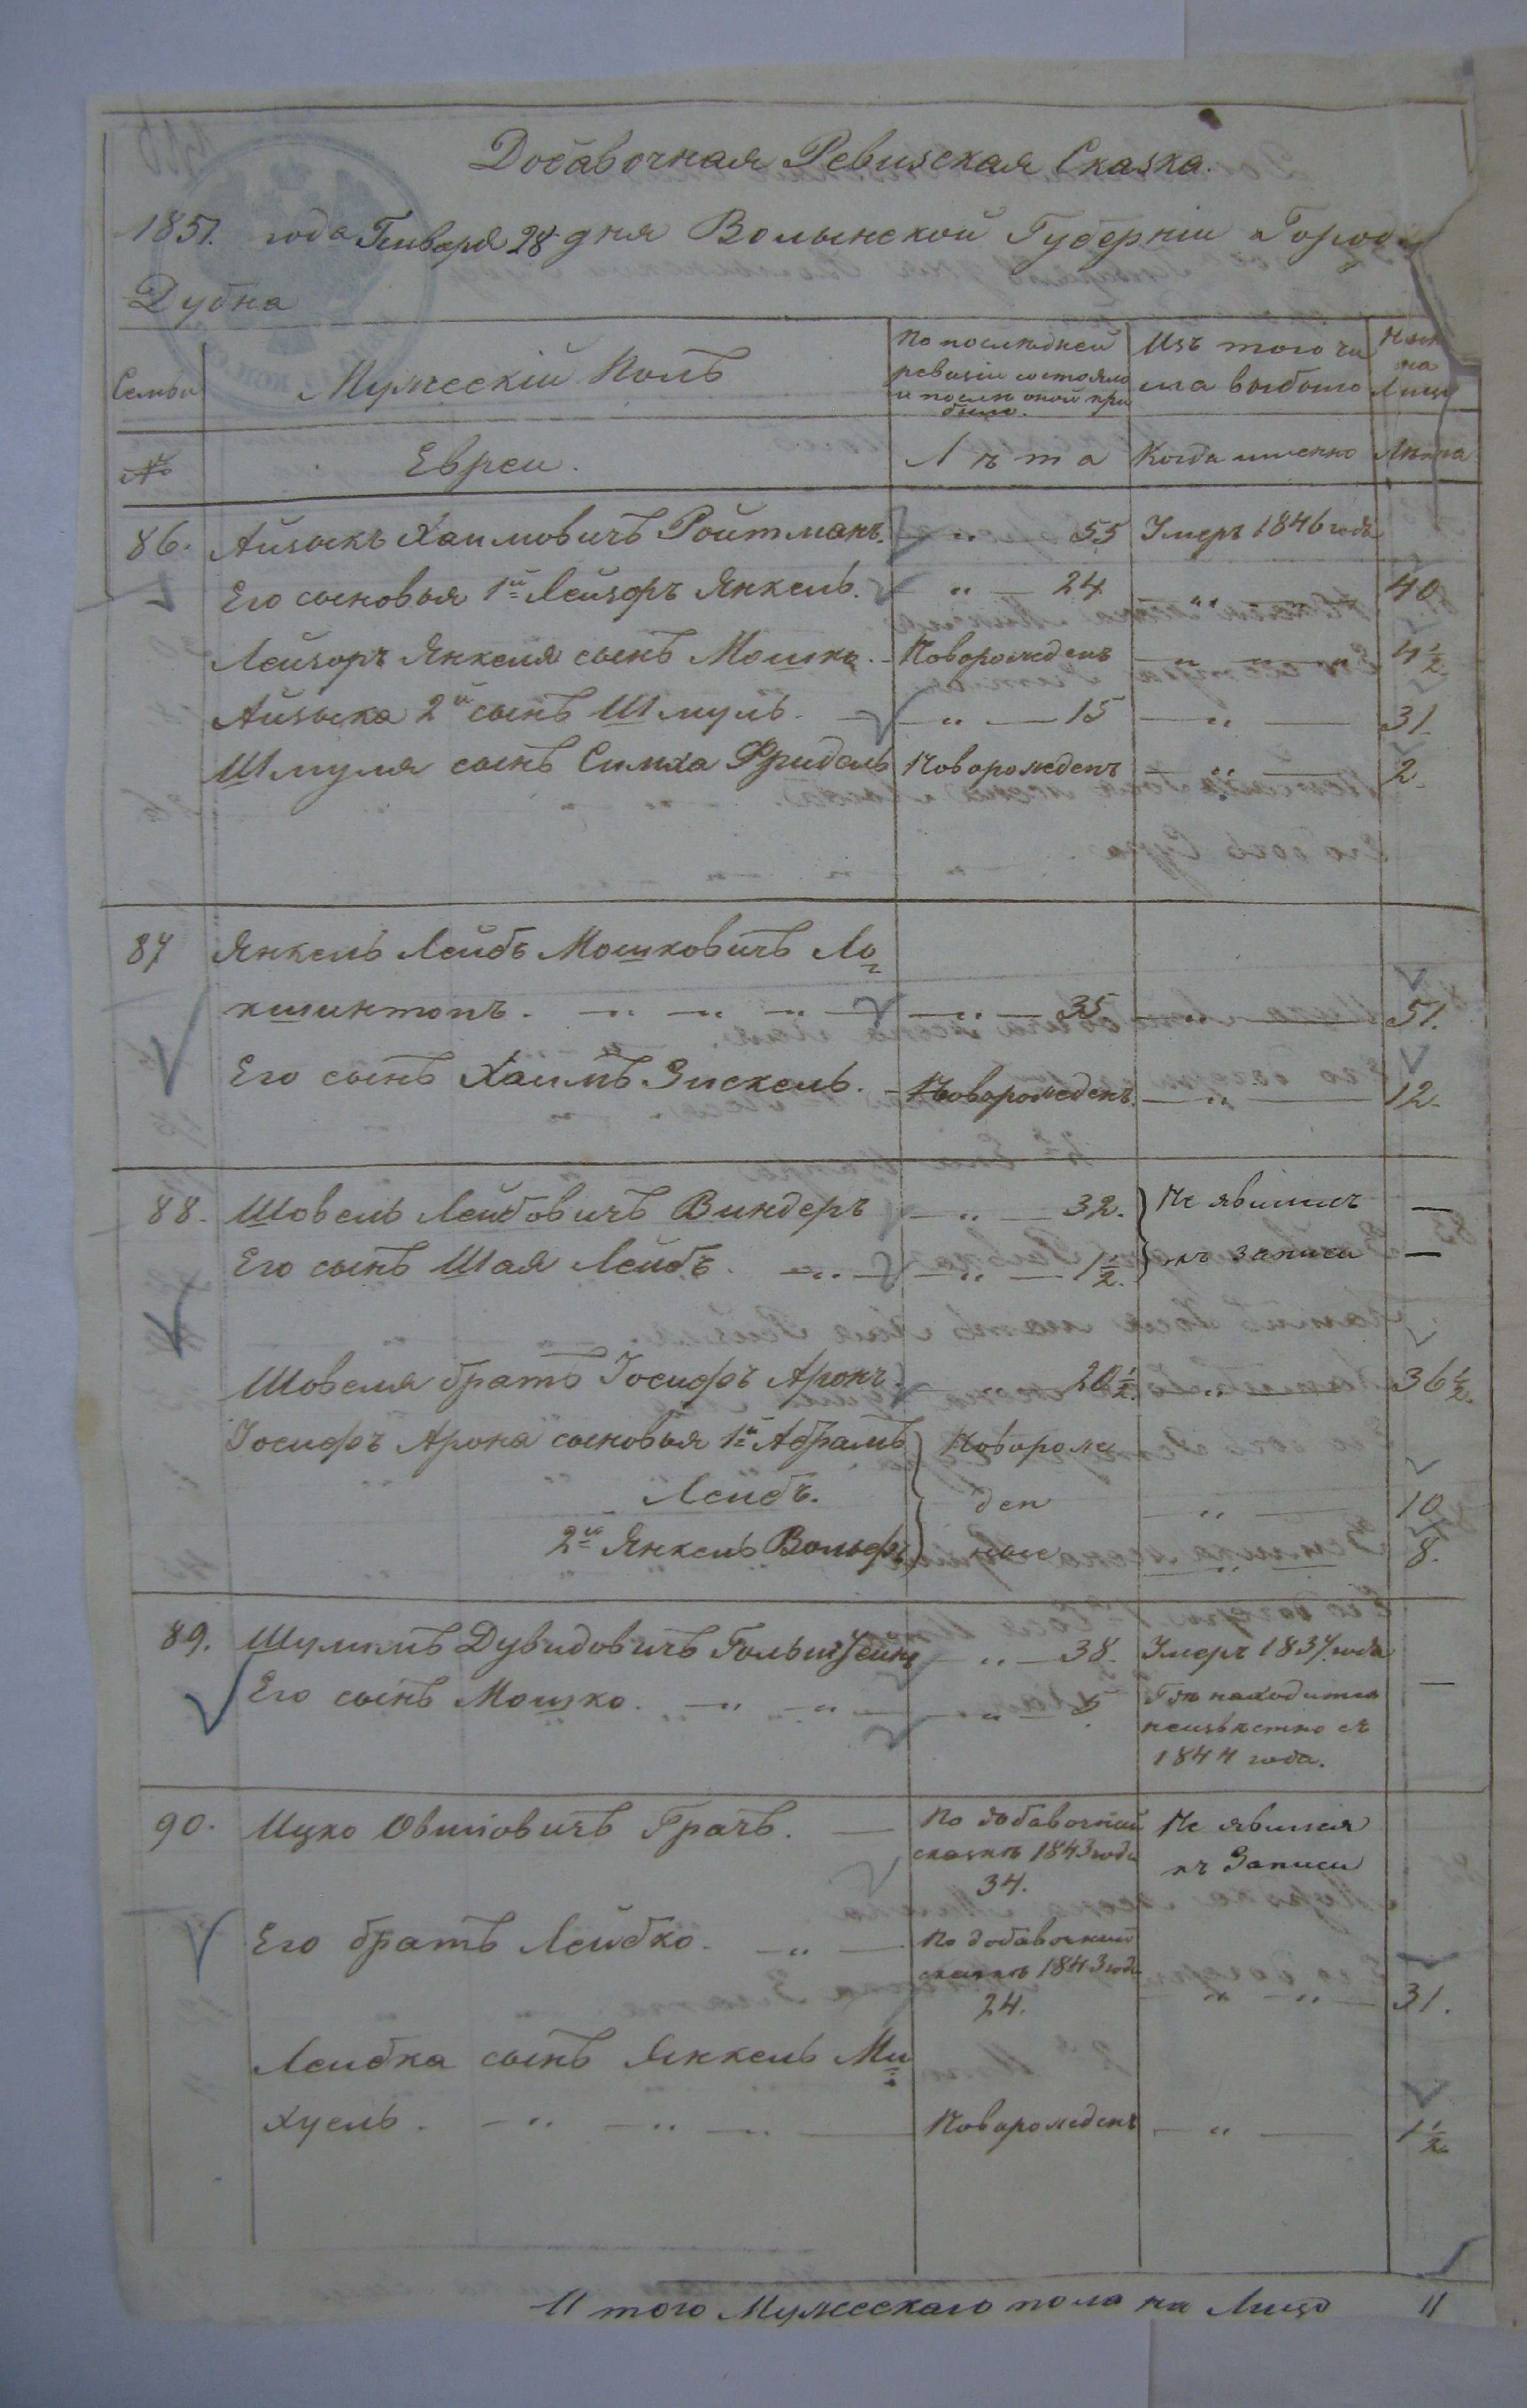 Добавочная Ревизская Сказка.
1851. года Генваря 28 дня Волынской Губерніи Города
Дубна
Семьи Мужескій Полъ По последней ревизіи состояло и послѣ оной прибыло. Изъ того числа выбыло на Лицо
№ Евреи. Лѣта Когда именно Лѣта
86. Айзыкъ Хаимовичъ Ройтманъ. „ 55 Умеръ 1846 года
Его сыновья 1й Лейзоръ Янкель. „ 24 „ 40
Лейзоръ Янкеля сынъ Мошко. Новорожденъ „ „ „ 4 1/2
Айзыка 2й сынъ Шмуль. „ 15 „ 31
Шмуля сынъ Симха Фридель Новорожденъ „ 2
87 Янкель Лейбъ Мошковичъ Ло
кшинтопъ. „ „ „ „ 35 „ 51.
Его сынъ Хаимъ Зискель. Новорожденъ. „ 12.
88. Шовель Лейбовичъ Виндеръ „ 32. Не явились —
Его сынъ Шая Лейбъ. „ „ 1 1/2. къ записи —
Шовеля братъ Іосифъ Аронъ. 20 1/2. „ 36 1/2.
Іосифъ Арона сыновья 1й Абрамъ Новорож
Лейбъ. ден „ 10
2й Янкель Вольфъ ные „ 8.
89. Шулимъ Дувидовичъ Гольштейнъ „ 38. Умеръ 1837 года
Его сынъ Мошко. „ „ „ Гдѣ находится —
неизвѣстно съ
1844 года.
90. Ицко Овшіовичъ Грачъ. — По добавочной Не явился
сказкѣ 1843 года къ Записи
34.
Его братъ Лейбко. „ По добавочной
сказкѣ 1843 года
24. „ „ 31.
Лейбка сынъ Янкель Ми
хуель. „ „ „ Новорожденъ „ 1 1/2
Итого Мужескаго пола на Лицо 11